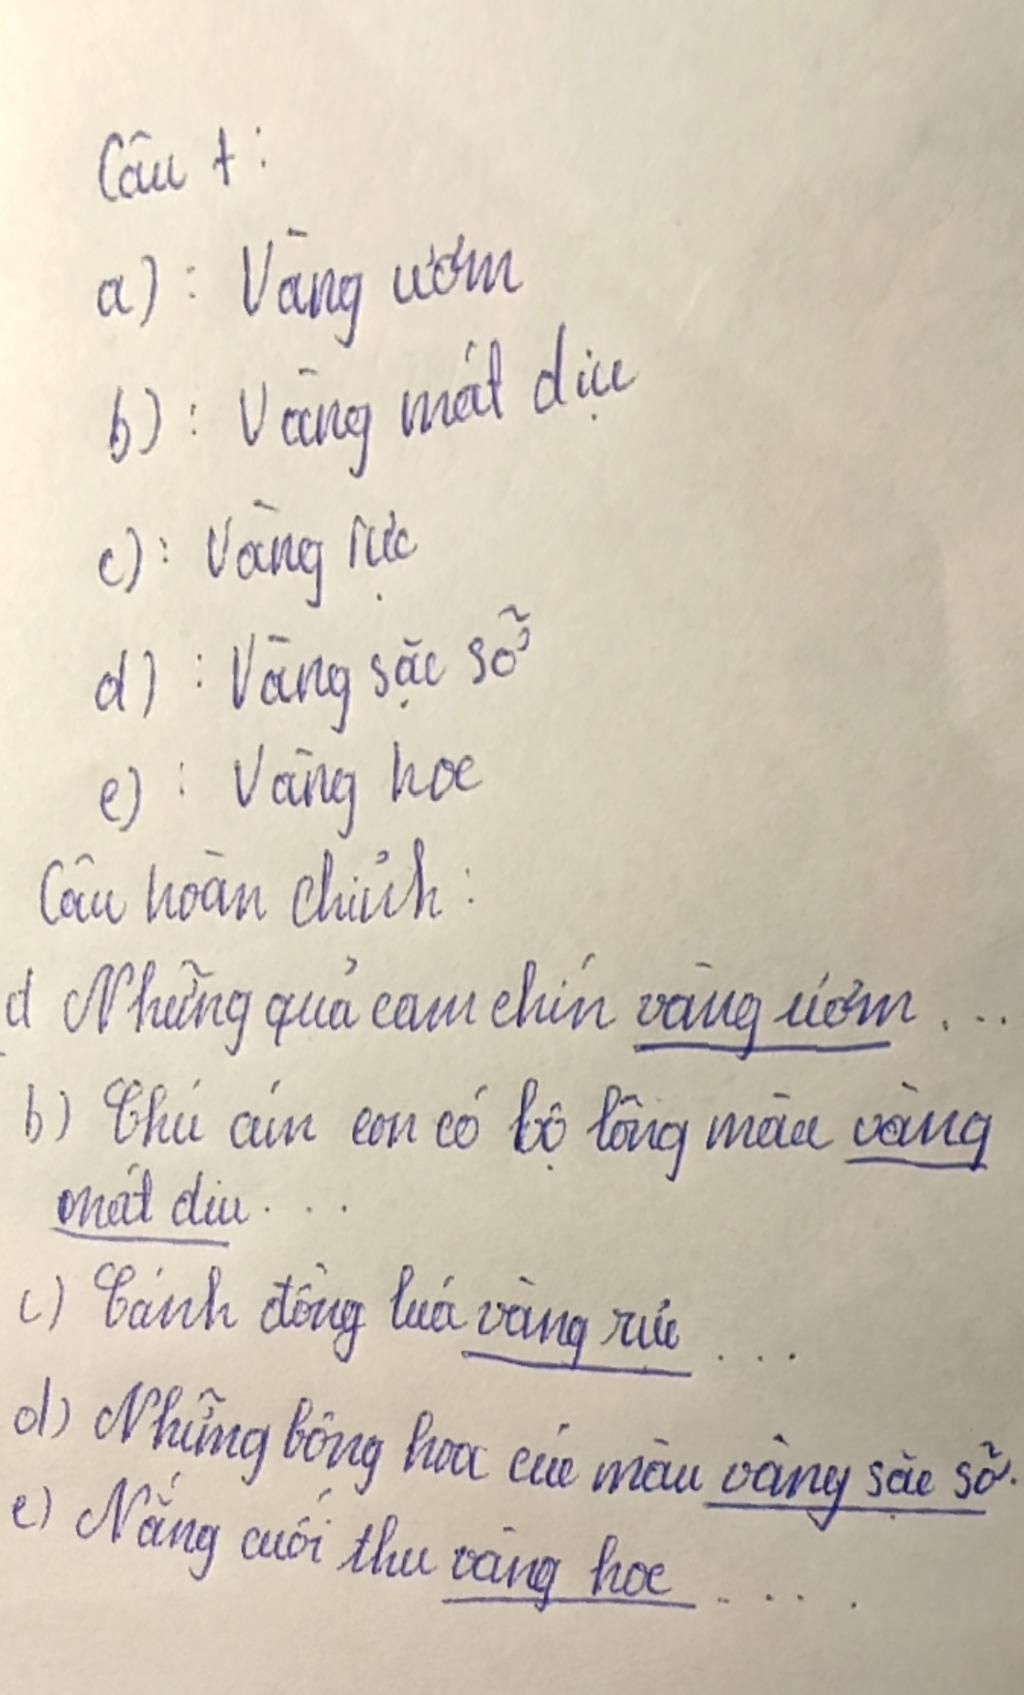 Câu 1:
a): Vàng ươm
b): Vàng mát dịu
c): Vàng rực
d): Vàng sặc sỡ
e): Vàng hoe
Câu hoàn chỉnh:
a Những quả cam chín vàng ươm ...
b) Chú cún con có bộ lông màu vàng
mát dịu ...
c) Cánh đồng luá vàng rực ...
d) Những bông hoa cúc màu vàng sặc sỡ.
e) Nắng cuối thu vàng hoe ....